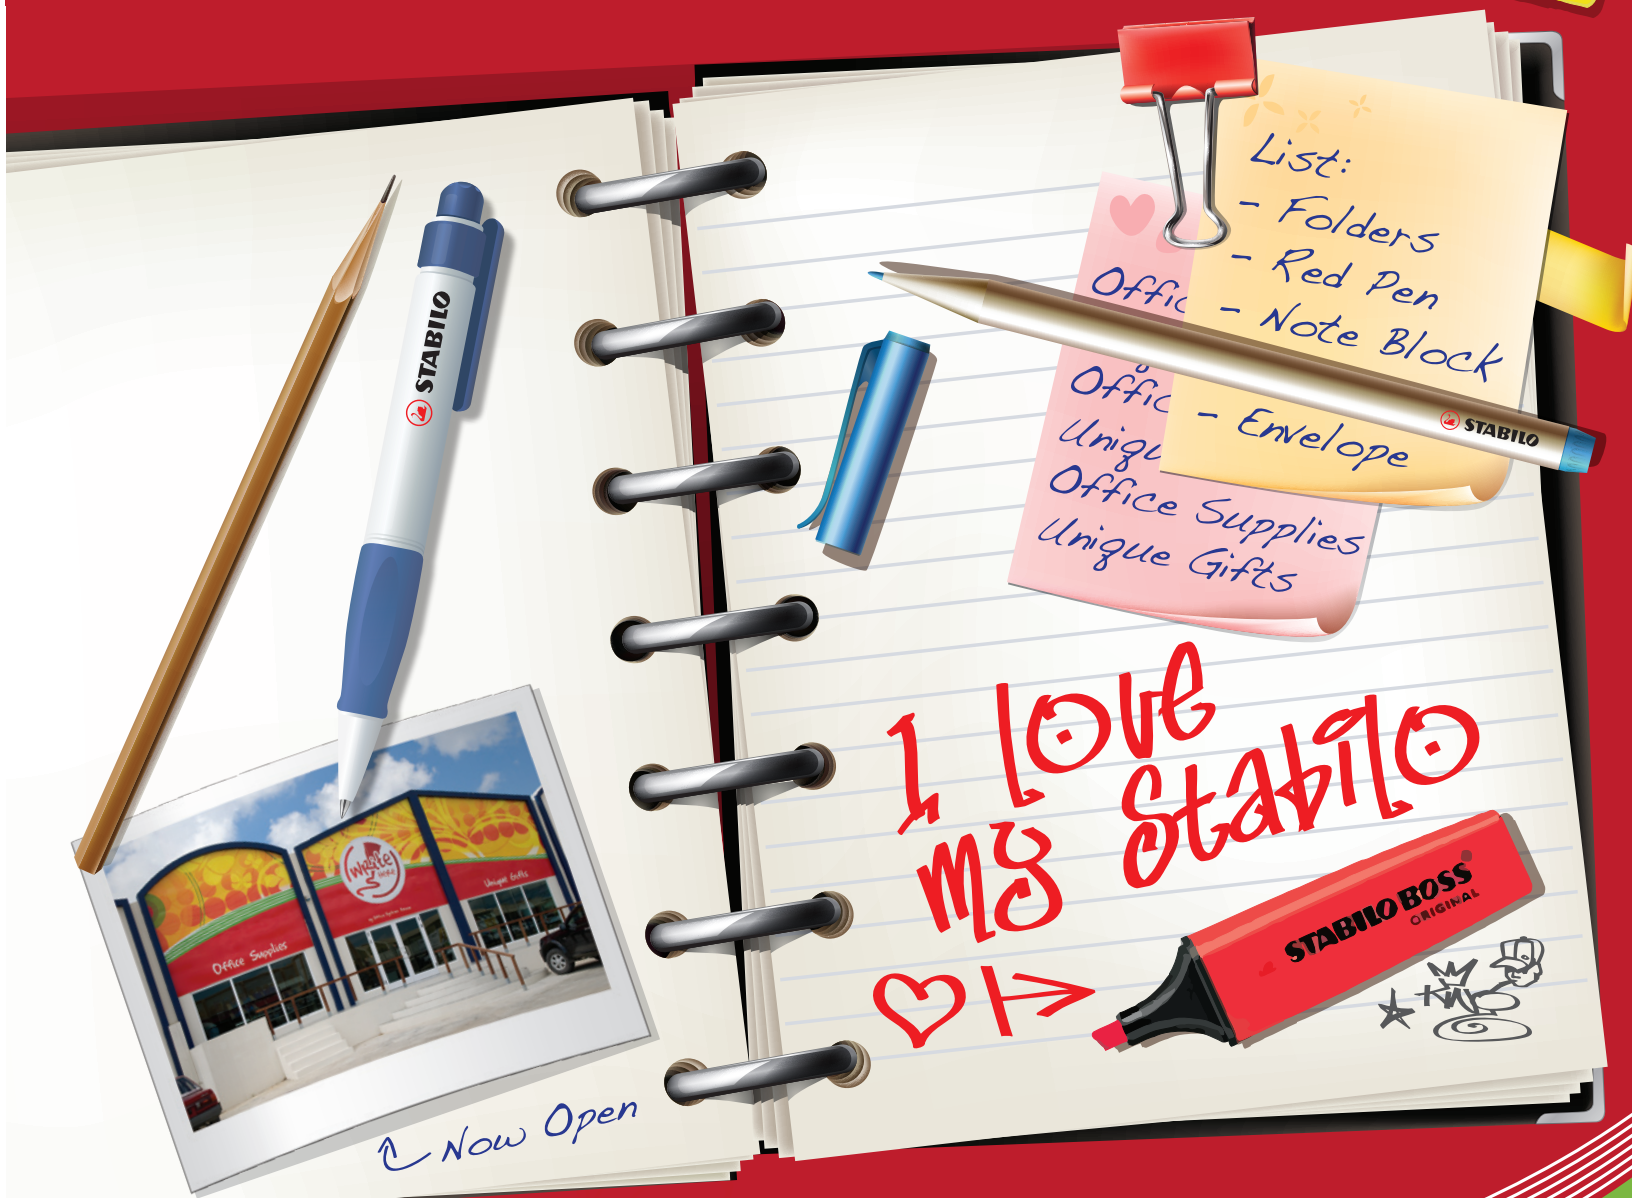 STABILO
List:
- Folders
- Red Pen
- Note Block
- Envelope
Offic
Offic
Uniqu
Office Supplies
Unique Gifts
STABILO
I love
my Stabilo
STABILO BOSS
ORIGINAL
Write
Office Supplies
Unique Gifts
Now Open